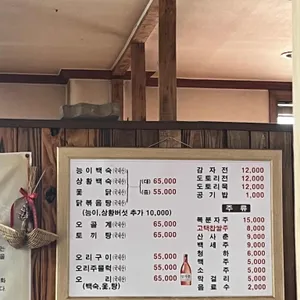 능이백숙(국내산)
상황백숙(국내산) (대) 65,000
꽃 닭(국내산) (중) 55,000
닭볶음탕(국내산)
(능이,상황버섯 추가 10,000)
오 골 계(국내산) 65,000
토 끼 탕(국내산) 65,000
오리구이(국내산) 55,000
오리주물럭(국내산) 55,000
오 리(국내산) 65,000
(백숙,옻,탕)
감 자 전 12,000
도토리전 12,000
도토리묵 12,000
공 기 밥 1,000
주 류
복분자주 15,000
고택찹쌀주 8,000
산 사 춘 9,000
백 세 주 9,000
청 하 6,000
맥 주 5,000
소 주 5,000
막 걸 리 5,000
음 료 수 2,000